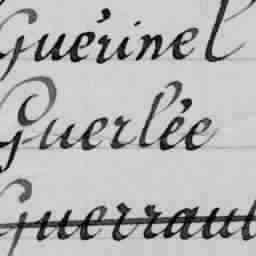 Guérinel
Guerlée
Guerraul